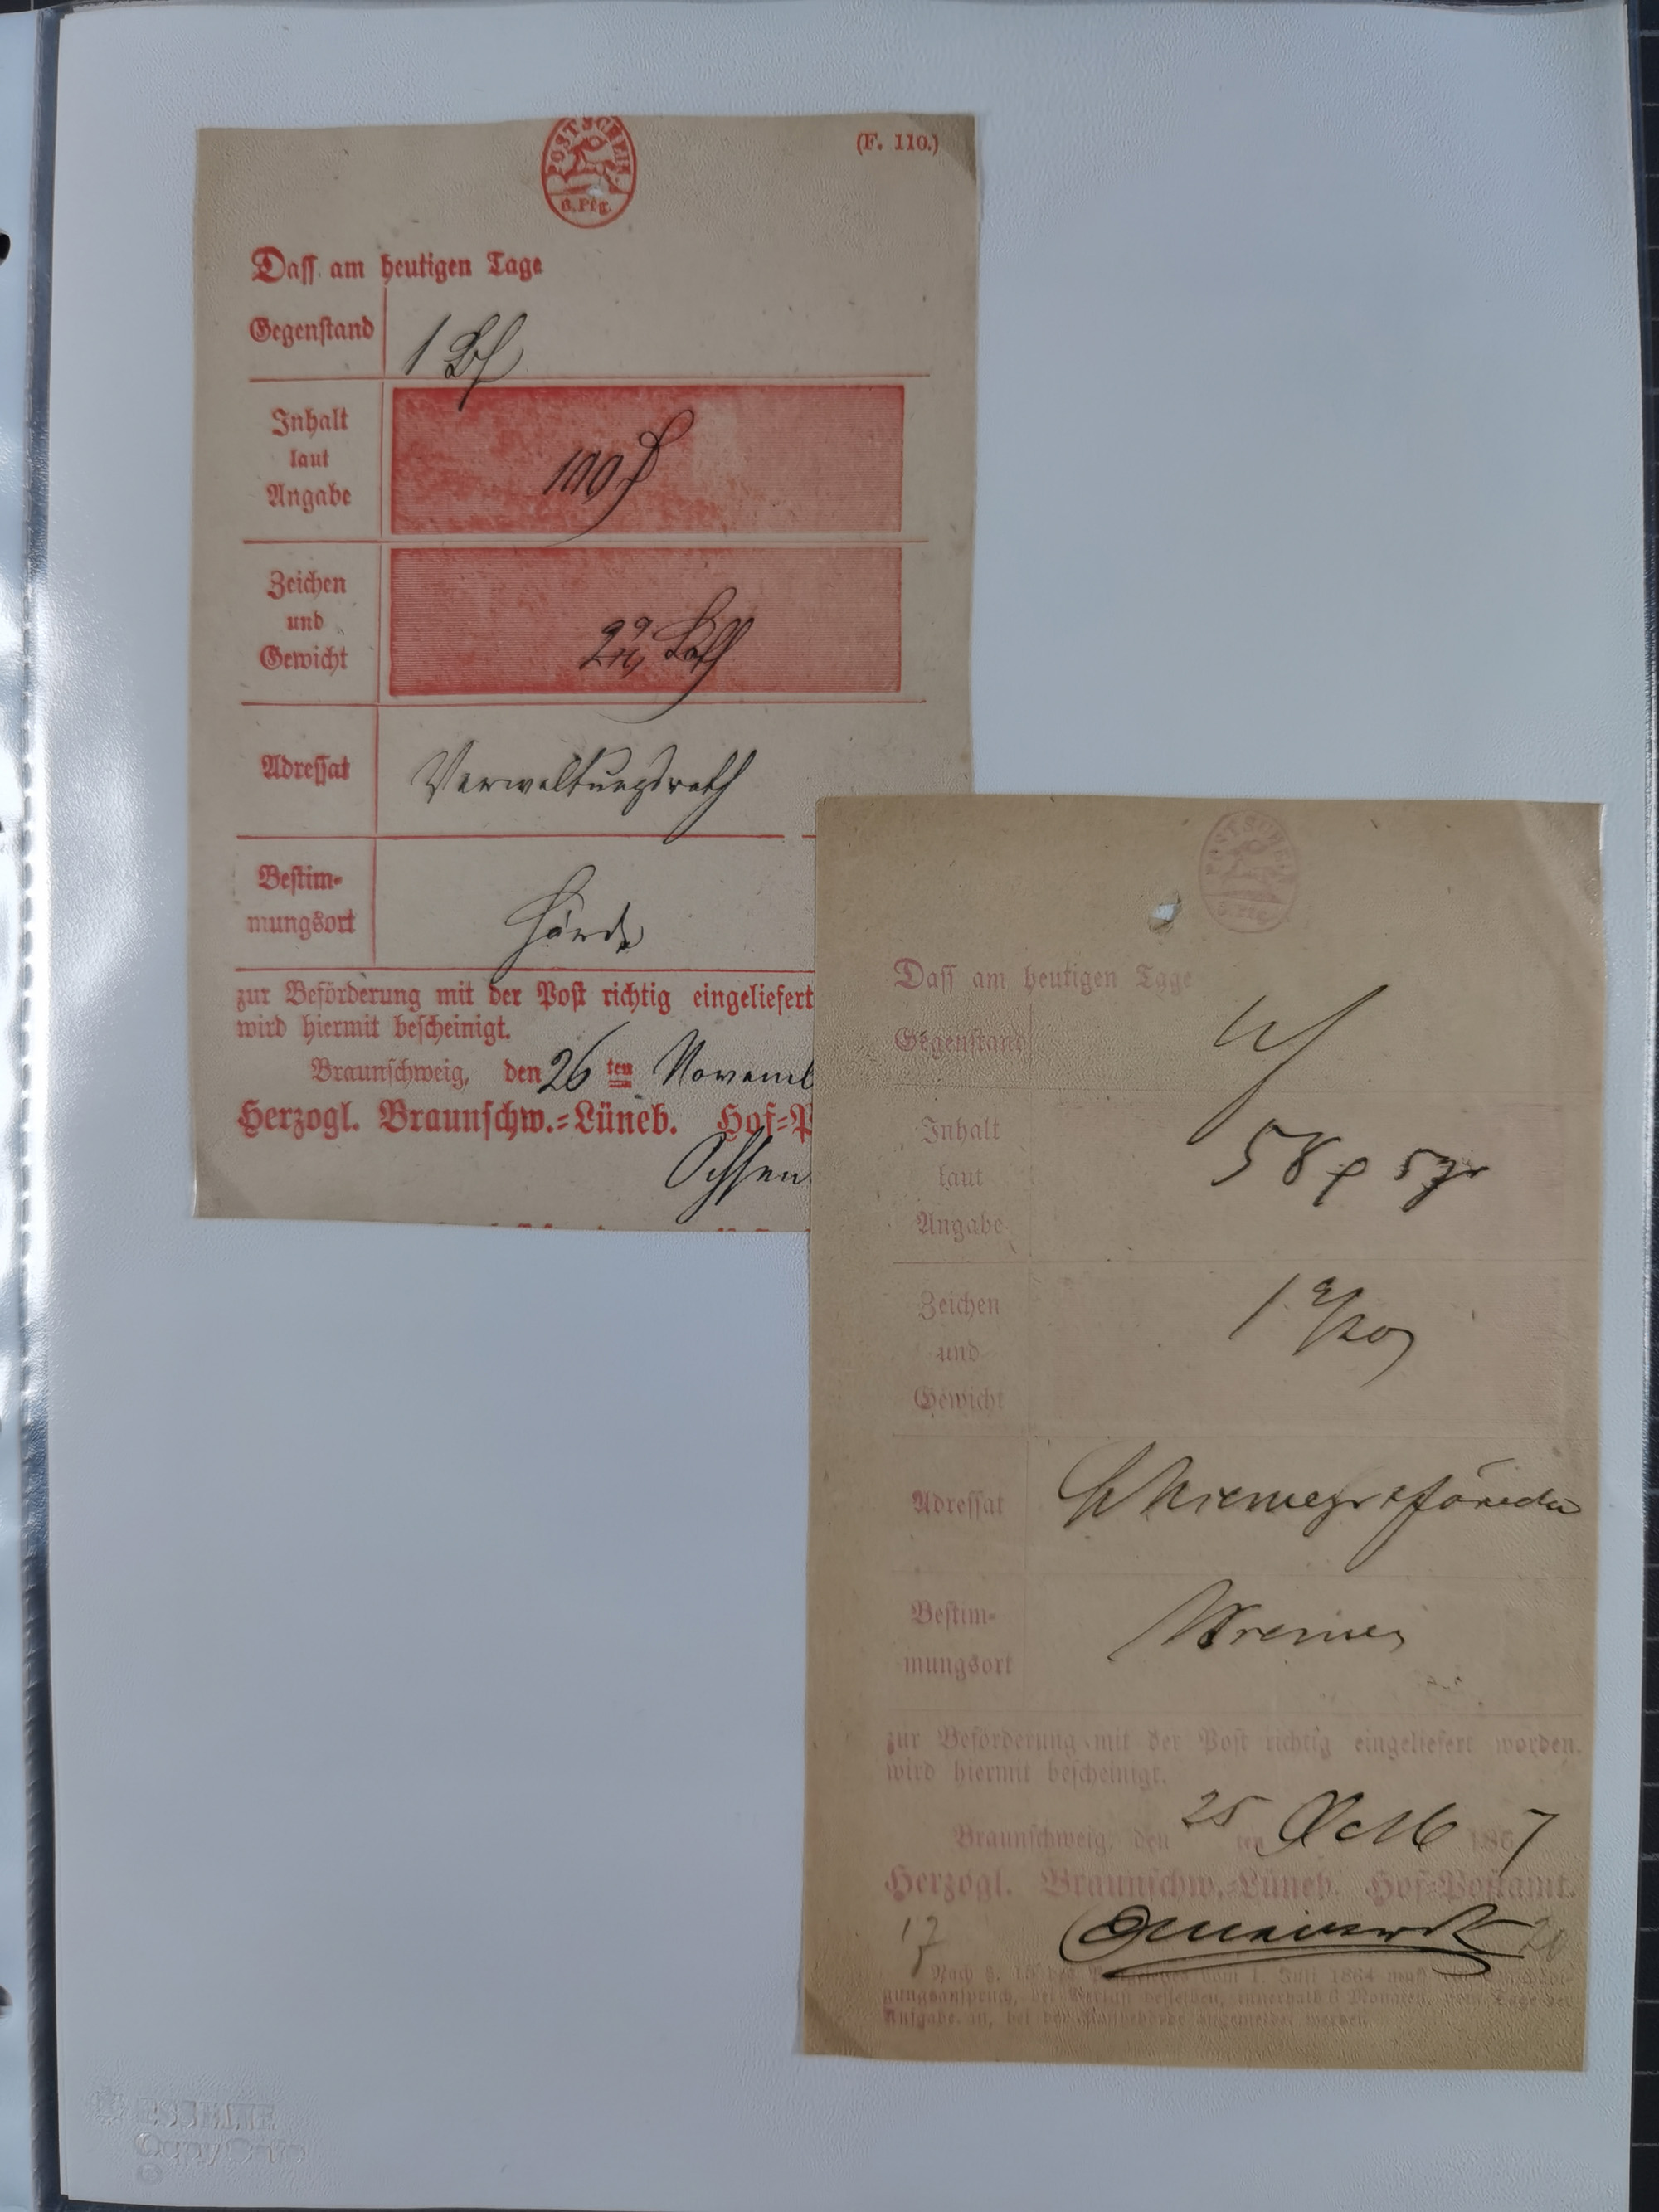 POSTSCHEIN
6. Pfg.
(F. 110.)
Dass am heutigen Tage
Gegenstand 1 Bf
Inhalt 
laut 100
Angabe
Zeichen
und Loth
Gewicht
Adressat Verwaltungsrath
Bestim-
mungsort Hörde
zur Beförderung mit der Post richtig eingeliefert
wird hiermit bescheinigt.
Braunschweig, den 26 ten Novemb
Herzogl. Braunschw.=Lüneb. Hof=P
Ochsen
POSTSCHEIN
6. Pfg.
Dass am heutigen Tage
Gegenstand
Inhalt
laut 58 5
Angabe
Zeichen
und 1 9/20
Gewicht
Adressat
Bestim-
mungsort Bremen
zur Beförderung mit der Post richtig eingeliefert worden,
wird hiermit bescheinigt.
Braunschweig, den 25 ten Octb 1867
Herzogl. Braunschw.=Lüneb. Hof=Postamt.
17
Nach §. 15 des vom 1. Juli 1864 muß
bei Verlust desselben, innerhalb 6 Monaten, vom Tage der
Aufgabe an, bei der angemeldet werden.
CopySafe